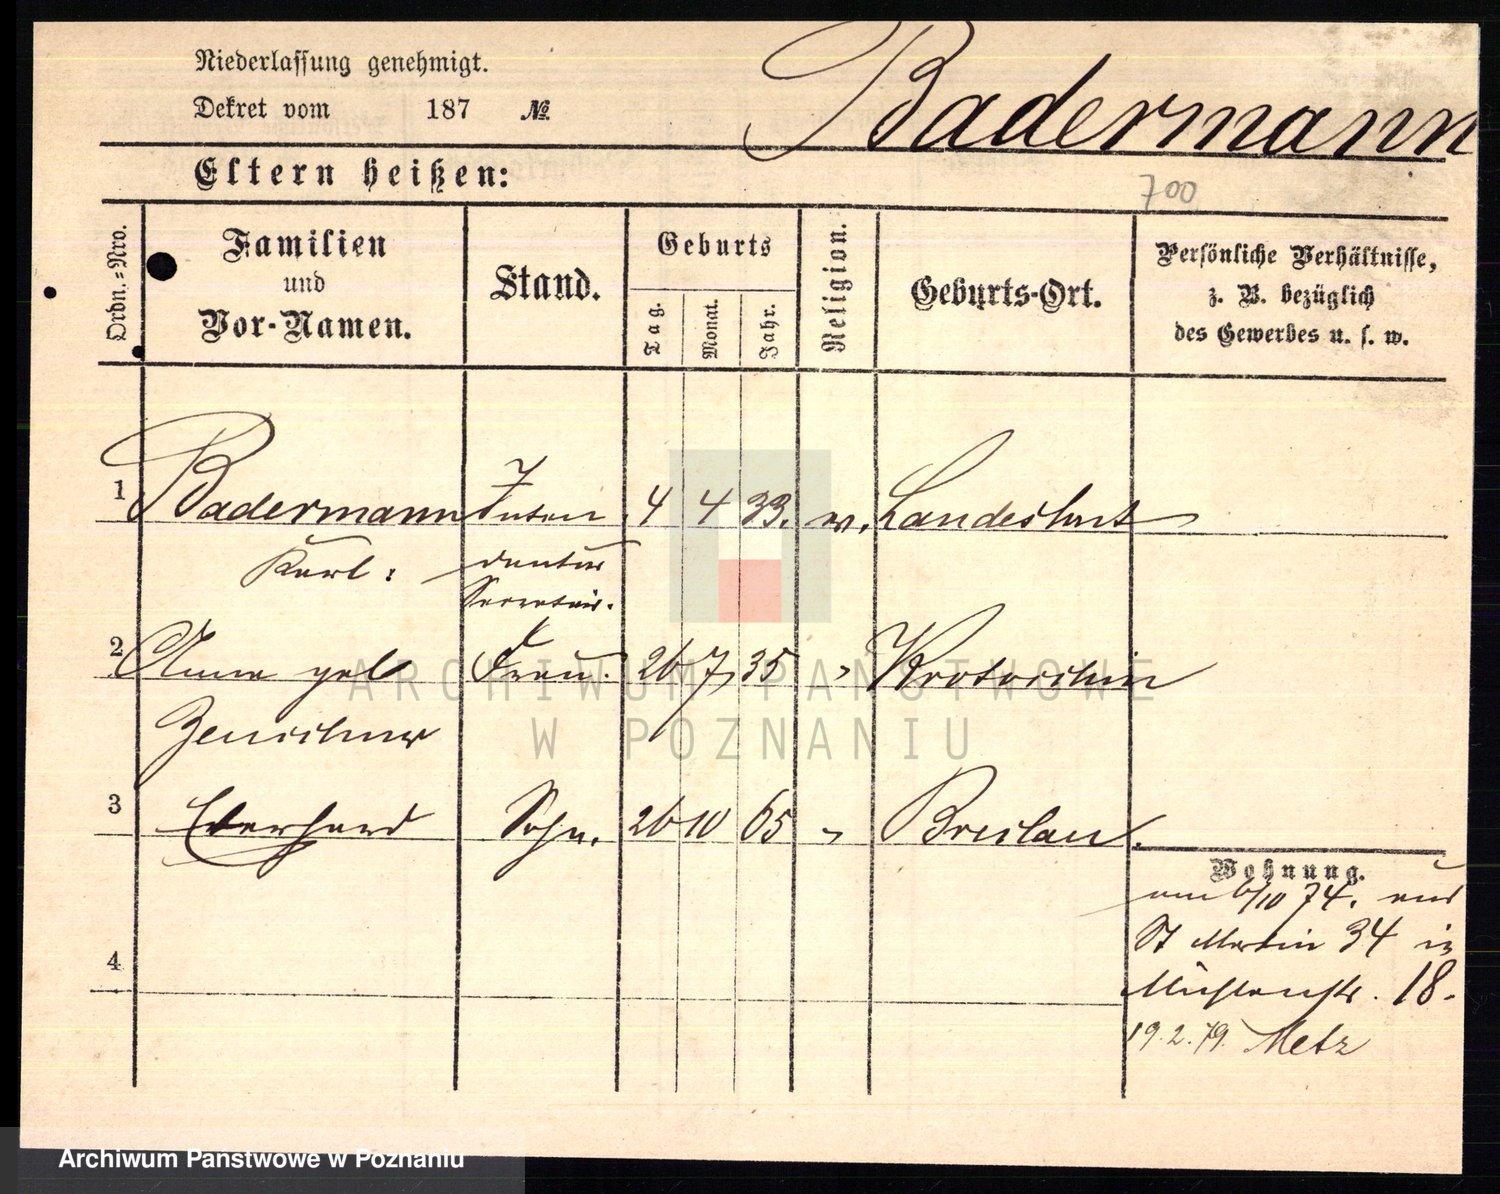 Niederlassung genehmigt.
Dekret vom 187 №
Badermann
Eltern heißen:
700
Ordn.=Nro.
Familien
und
Vor-Namen.
Stand.
Geburts
Tag.
Monat.
Jahr.
Religion.
Geburts-Ort.
Persönliche Verhältnisse,
z. B. bezüglich
des Gewerbes u. s. w.
1 Badermann Inten 4 4 33. ev. Landeshut
Karl: dantur
Secretair.
2 Anna geb Frau. 26 7 35 " Krotoschin
3 Eberhard Sohn. 26 10 65 " Breslau.
4
Wohnung.
am 6/10 74. aus
St Martin 34 in
Mühlenstr. 18.
19.2.79. Metz
ARCHIWUM PAŃSTWOWE
W POZNANIU
Archiwum Państwowe w Poznaniu